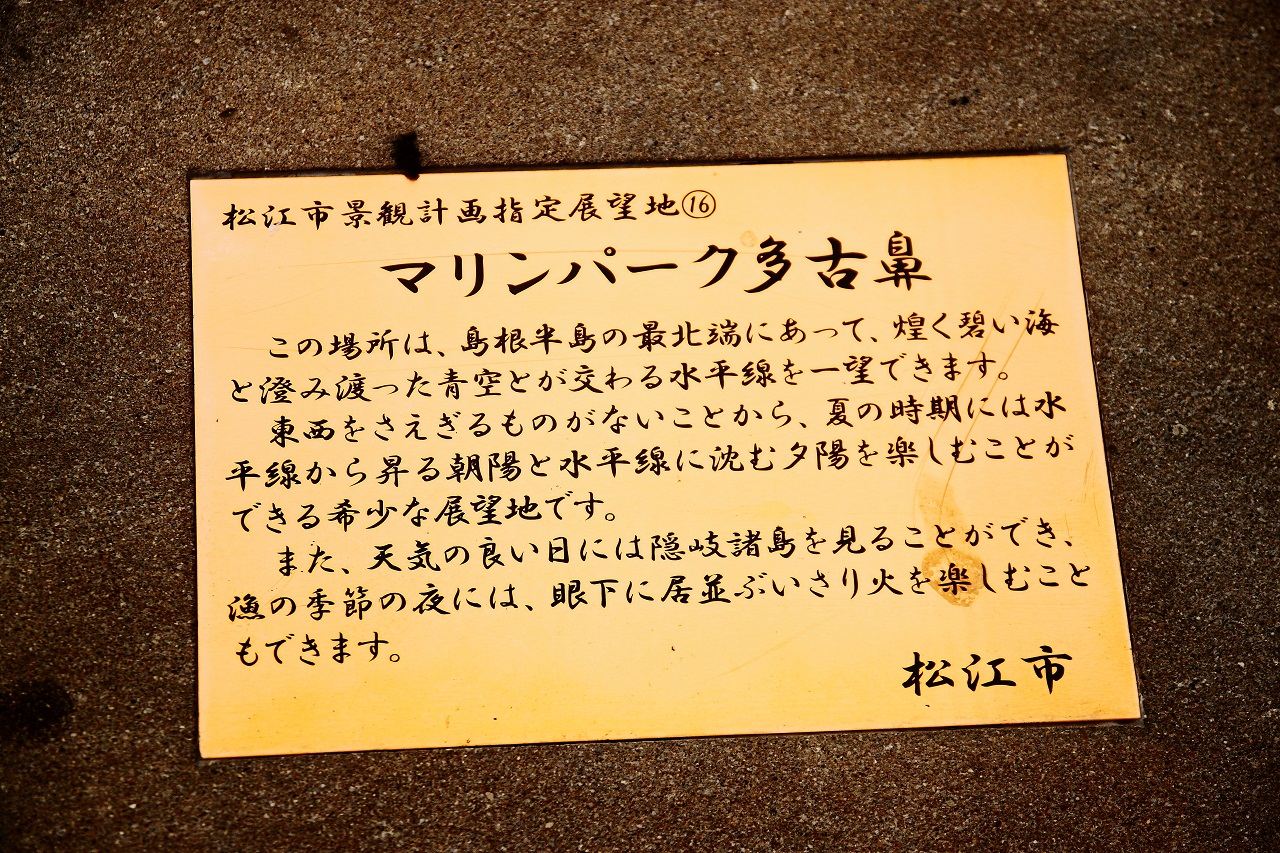 松江市景観計画指定展望地⑯
マリンパーク多古鼻
この場所は、島根半島の最北端にあって、煌く碧い海
と澄み渡った青空とが交わる水平線を一望できます。
東西をさえぎるものがないことから、夏の時期には水
平線から昇る朝陽と水平線に沈む夕陽を楽しむことが
できる希少な展望地です。
また、天気の良い日には隠岐諸島を見ることができ、
漁の季節の夜には、眼下に居並ぶいさり火を楽しむこと
もできます。
松江市